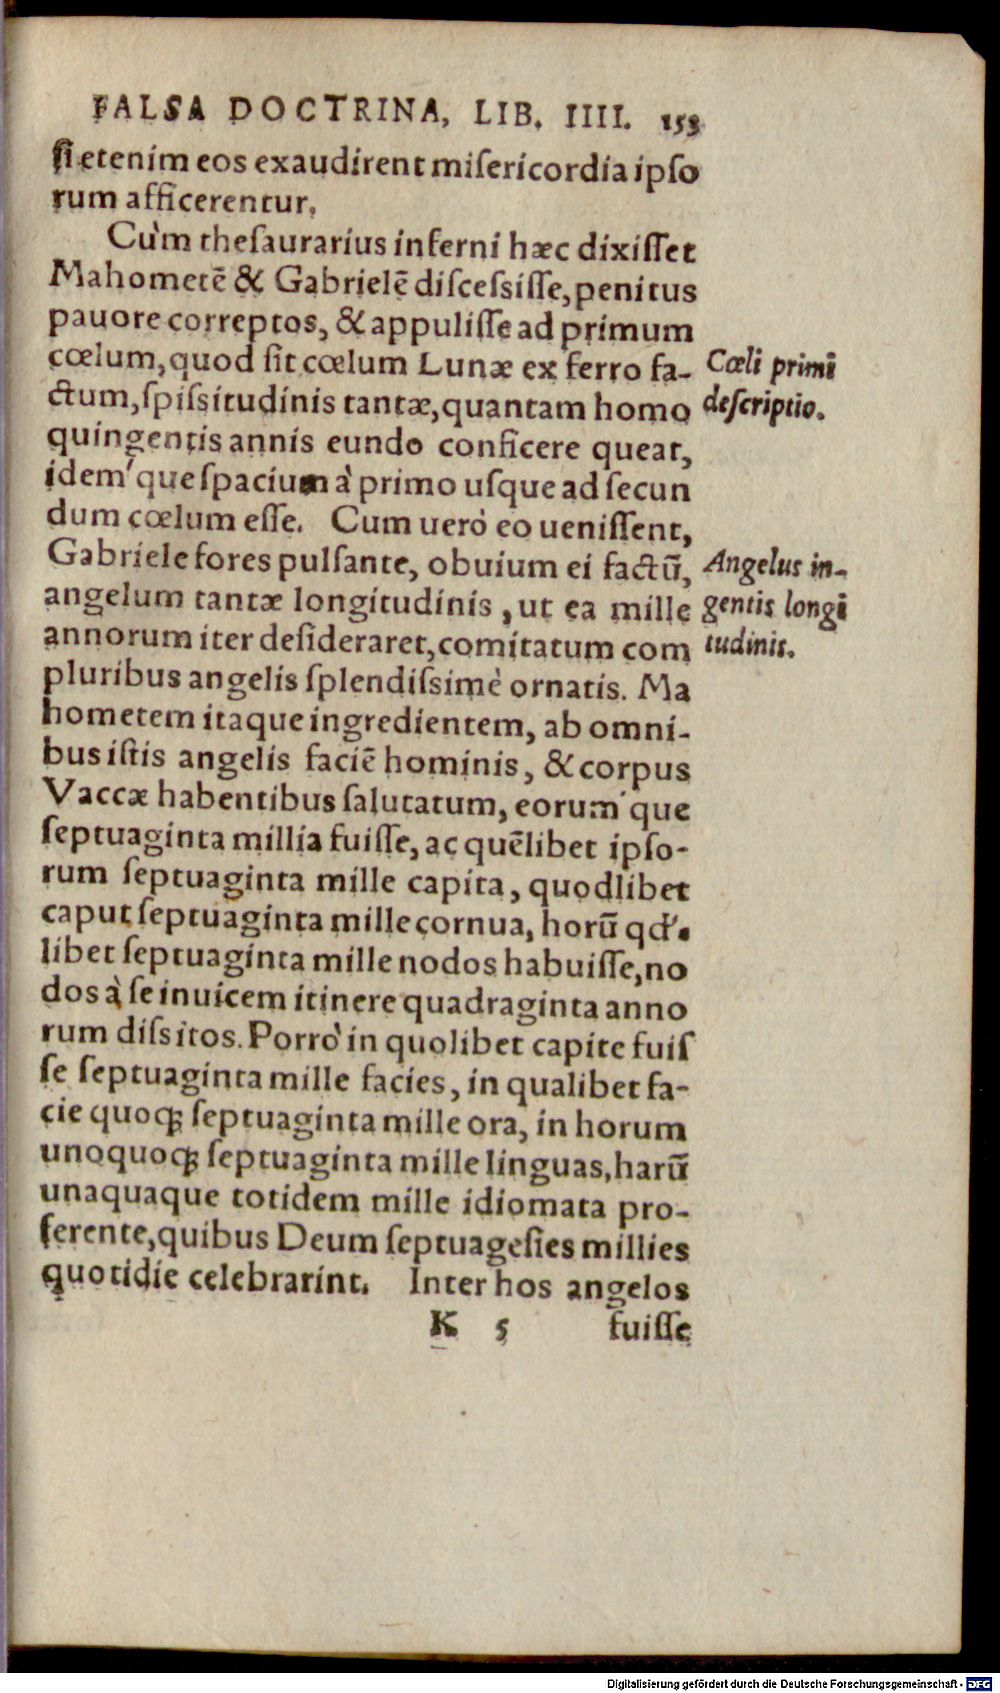 FALSA DOCTRINA, LIB. IIII. 153
ſi etenim eos exaudirent miſericordia ipſo
rum afficerentur.
Cùm theſaurarius inferni hæc dixiſſet
Mahometē & Gabrielē diſceſsiſſe, penitus
pauore correptos, & appuliſſe ad primum
cœlum, quod ſit cœlum Lunæ ex ferro fa-
ctum, ſpiſsitudinis tantæ, quantam homo
quingentis annis eundo conficere queat,
ideḿque ſpacium à primo uſque ad ſecun
dum cœlum eſſe. Cum uerò eo ueniſſent,
Gabriele fores pulſante, obuium ei factū,
angelum tantæ longitudinis, ut ea mille
annorum iter deſideraret, comitatum com
pluribus angelis ſplendiſsimè ornatis. Ma
hometem itaque ingredientem, ab omni-
bus iſtis angelis faciē hominis, & corpus
Vaccæ habentibus ſalutatum, eoruḿque
ſeptuaginta millia fuiſſe, ac quēlibet ipſo-
rum ſeptuaginta mille capita, quodlibet
caput ſeptuaginta mille cornua, horū qd'.
libet ſeptuaginta mille nodos habuiſſe, no
dos à ſe inuicem itinere quadraginta anno
rum diſsitos. Porrò in quolibet capite fuiſ
ſe ſeptuaginta mille facies, in qualibet fa-
cie quoqꝫ ſeptuaginta mille ora, in horum
unoquoqꝫ ſeptuaginta mille linguas, harū
unaquaque totidem mille idiomata pro-
ferente, quibus Deum ſeptuageſies millies
quotidie celebrarint. Inter hos angelos
K 5 fuiſſe
Cœli primi
deſcriptio.
Angelus in-
gentis longi
tudinis.
Digitalisierung gefördert durch die Deutsche Forschungsgemeinschaft - DFG